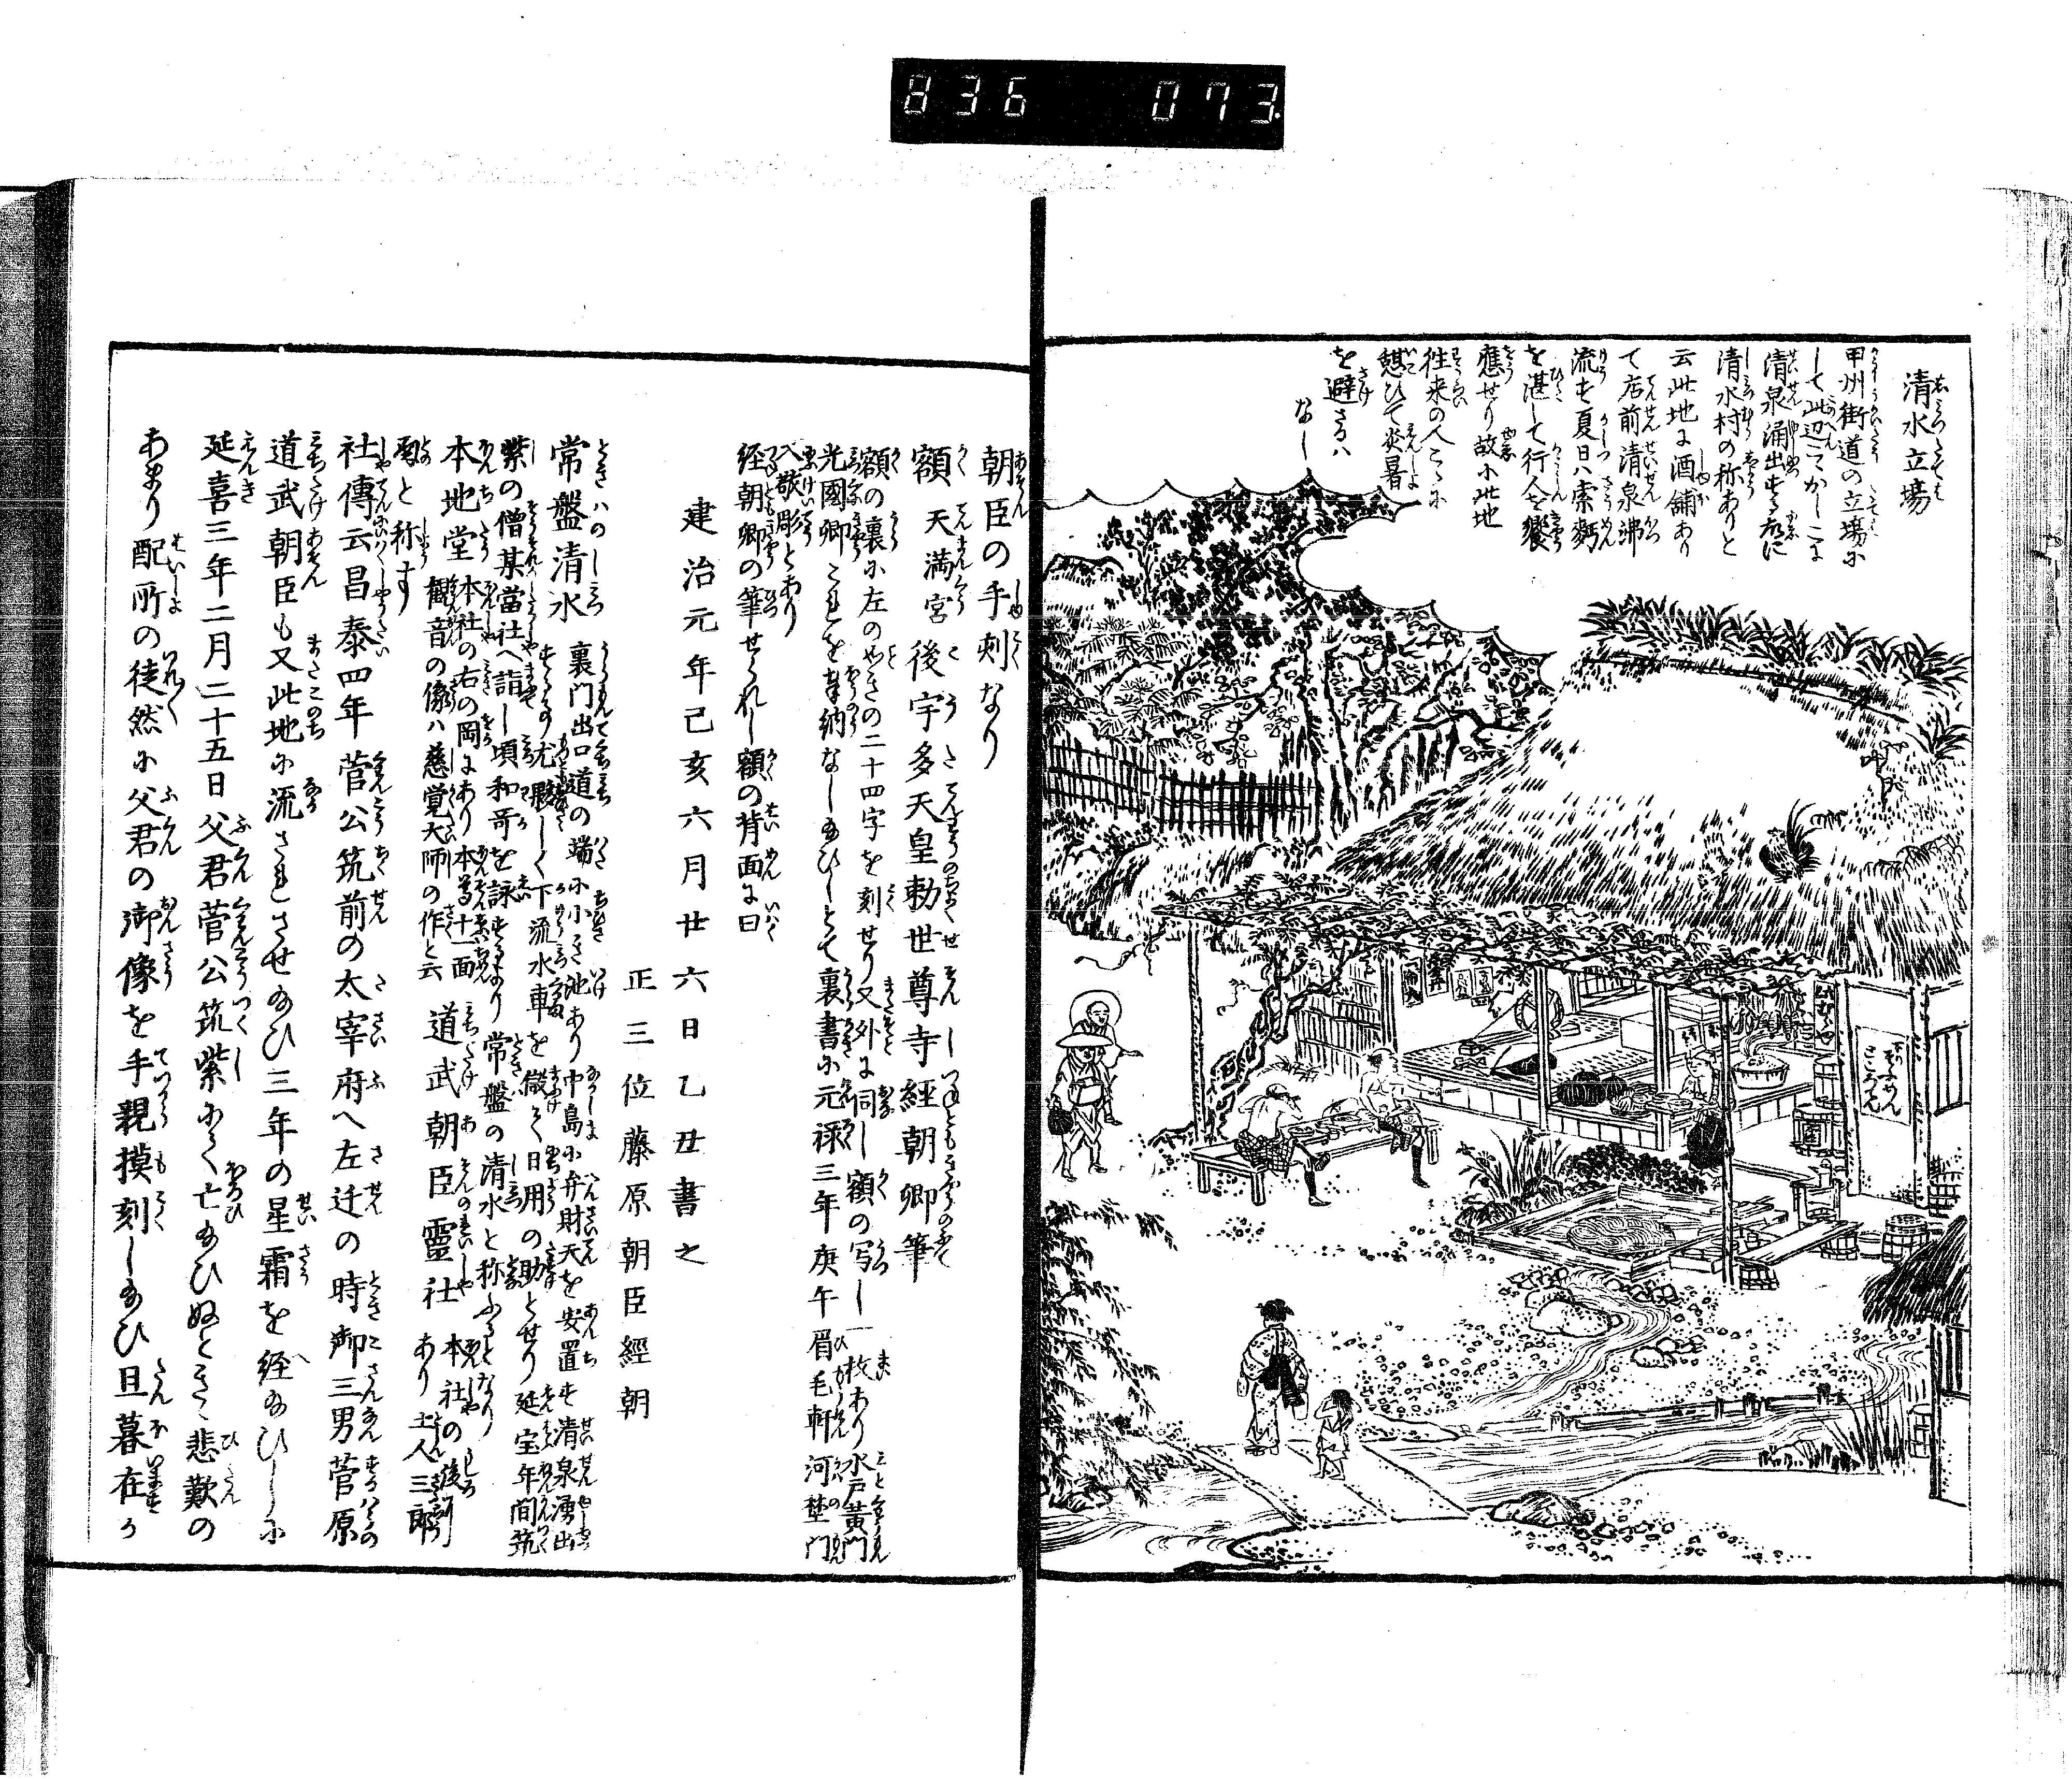 836 073
清水立場
甲州街道の立場に
して此辺こかしこに
清泉涌出する故に
清水村の称ありと
云此地に酒舗あり
て店前清泉沸
流す夏日ハ索麪
を湛して行人を饗
應せり故に此地
往来の人こゝに
憩ひて炎暑
を避さるハ
なし
朝臣の手刻なり
額 天満宮 後宇多天皇勅世尊寺経朝卿筆
額の裏に左のめきの二十四字を刻せり又外に同し額の写し一枚あり水戸黄門
光國卿これを奉納なし給ひしとて裏書に元禄三年庚午眉毛軒河埜門
入敬彫とあり
経朝卿の筆せられし額の背面に曰
建治元年己亥六月廿六日乙丑書之
正三位藤原朝臣經朝
常盤清水 裏門出口道の端に小き池あり中島に弁財天を安置す清泉湧出
する尤夥しく下流水車を儲て日用の助とせり延宝年間筑
紫の僧某當社へ詣し頃和哥を詠するより常盤の清水と称ふるとなり
本地堂 本社の右の岡にあり本尊十一面
観音の像ハ慈覚大師の作と云
道武朝臣靈社 本社の後
あり土人三郎
殿と称す
社傳云昌泰四年菅公筑前の太宰府へ左迁の時御三男菅原
道武朝臣も又此地に流されさせ給ひ三年の星霜を経給ひしに
延喜三年二月二十五日父君菅公筑紫にて亡給ひぬときゝ悲歎の
あまり配所の徒然に父君の御像を手親摸刻し給ひ旦暮在か